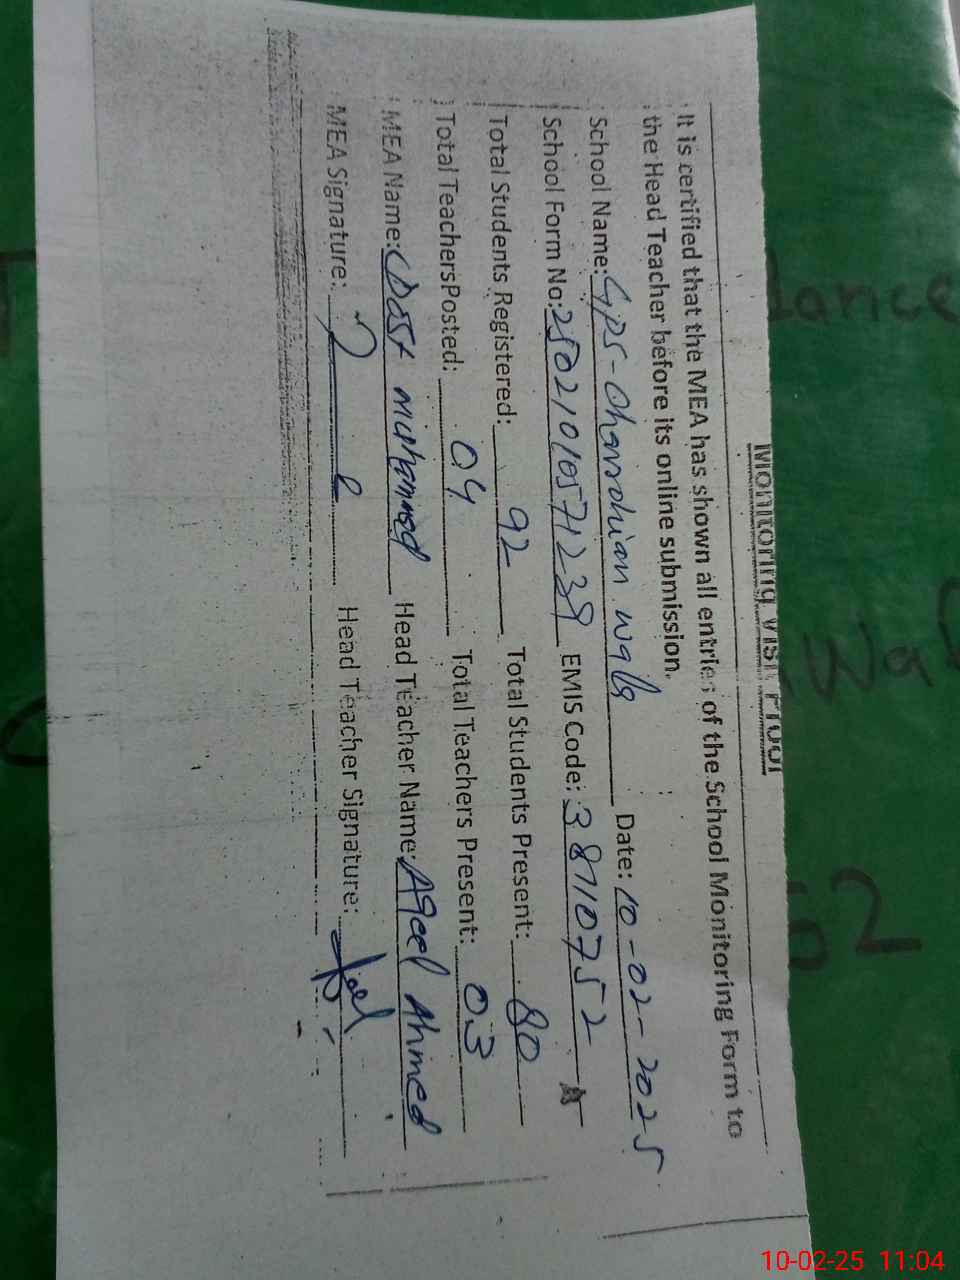 Monitoring Visit Proof
It is certified that the MEA has shown all entries of the School Monitoring Form to
the Head Teacher before its online submission.
School Name: GPS-Charohian wala Date: 10-02-2025
School Form No: 25021010571239 EMIS Code: 38710752
Total Students Registered: 92 Total Students Present: 80
Total Teachers Posted: 04 Total Teachers Present: 03
MEA Name: Dost Muhammad Head Teacher Name: Aqeel Ahmed
MEA Signature: Head Teacher Signature:
52
10-02-25 11:04